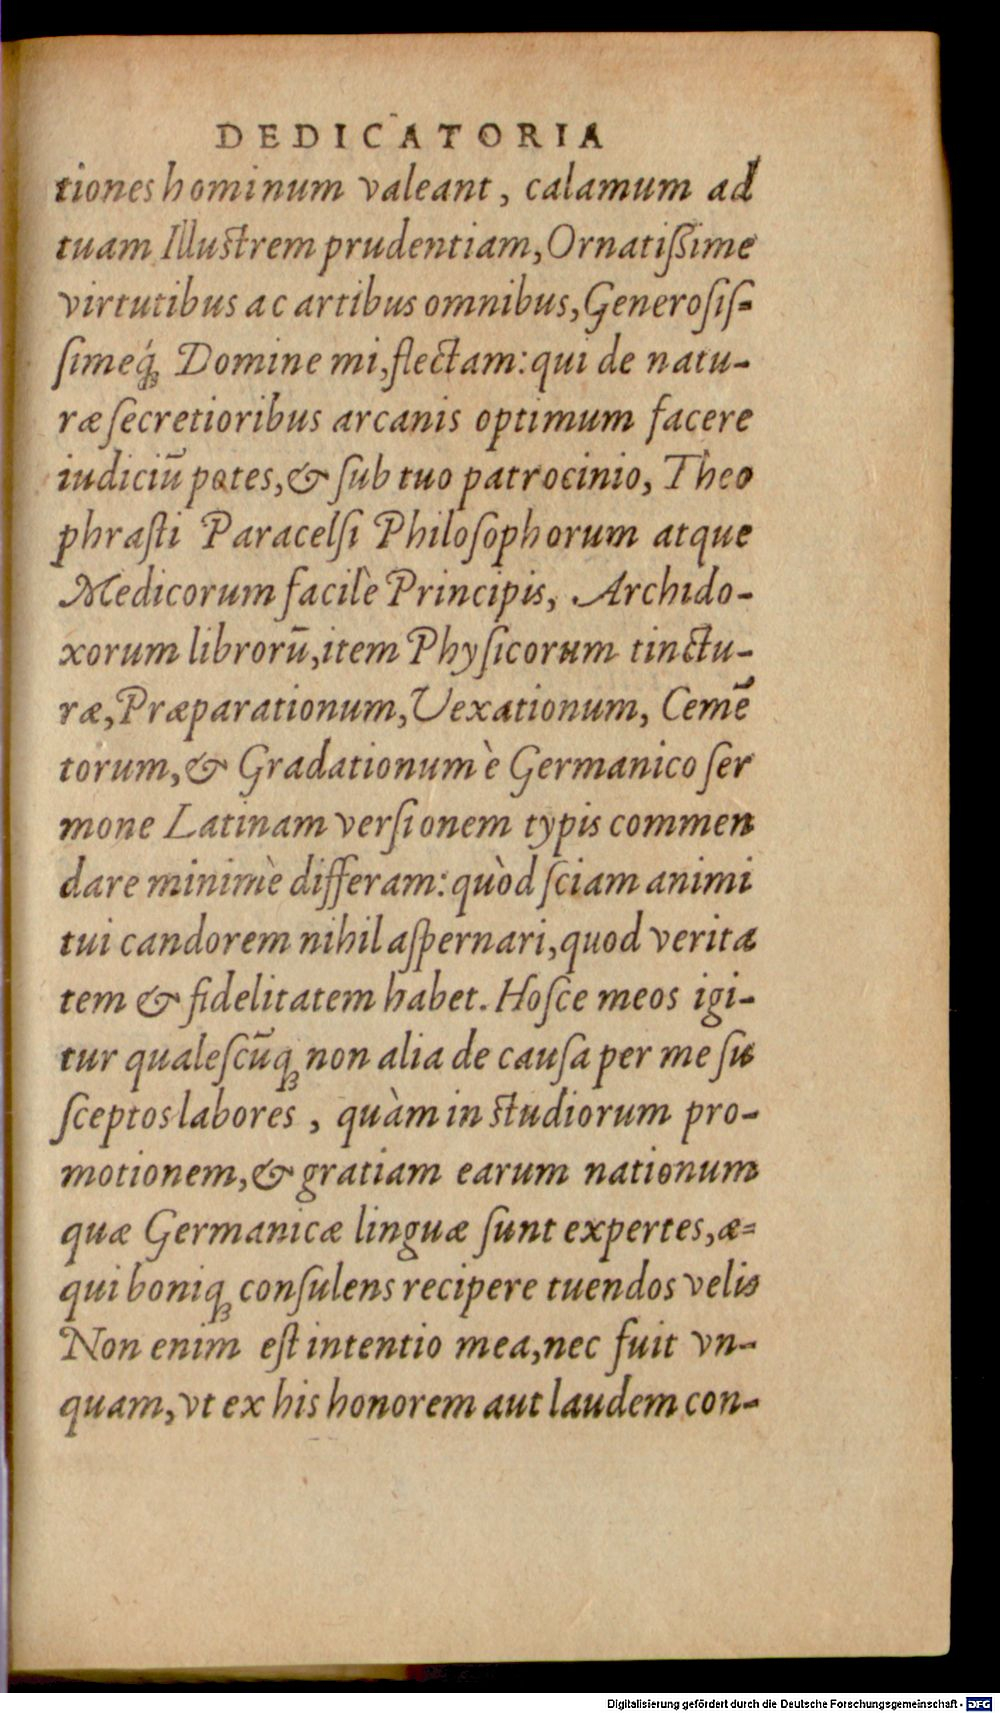 DEDICATORIA
tiones hominum valeant, calamum ad
tuam Illustrem prudentiam, Ornatiſſime
virtutibus ac artibus omnibus, Generoſiſ-
ſimeq́ꝫ Domine mi, flectam: qui de natu-
ræ ſecretioribus arcanis optimum facere
iudiciū potes, & ſub tuo patrocinio, Theo
phraſti Paracelſi Philoſophorum atque
Medicorum facilè Principis, Archido-
xorum librorū, item Phyſicorum tinctu-
ræ, Præparationum, Vexationum, Cemē
torum, & Gradationum è Germanico ſer
mone Latinam verſionem typis commen
dare minimè differam: quòd ſciam animi
tui candorem nihil aſpernari, quod verita
tem & fidelitatem habet. Hoſce meos igi-
tur qualeſcūqꝫ non alia de cauſa per me ſu
ſceptos labores, quàm in studiorum pro-
motionem, & gratiam earum nationum
quæ Germanicæ linguæ ſunt expertes, æ-
qui boniqꝫ conſulens recipere tuendos velis
Non enim eſt intentio mea, nec fuit vn-
quam, vt ex his honorem aut laudem con-
Digitalisierung gefördert durch die Deutsche Forschungsgemeinschaft - DFG